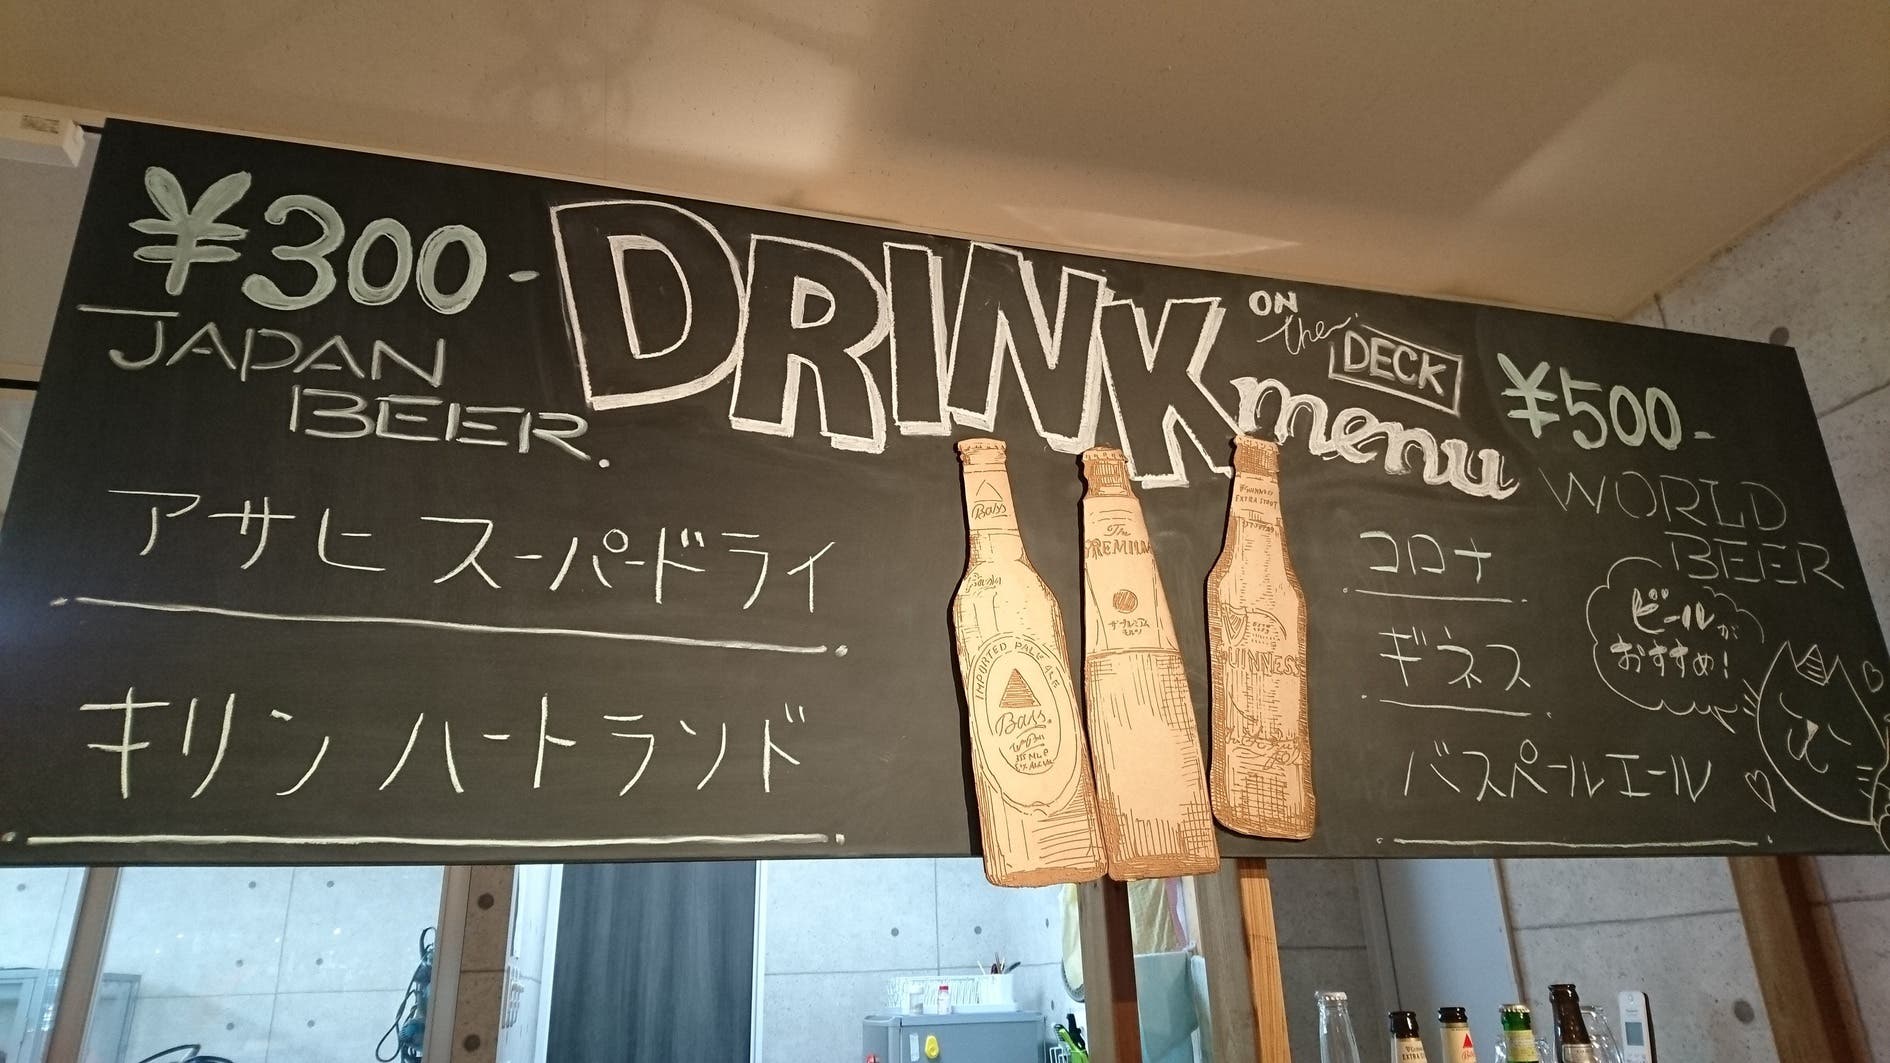 ¥300-
JAPAN
BEER.
アサヒ スーパードライ
キリン ハートランド
DRINK
menu
ON
the
DECK
¥500-
WORLD
BEER
コロナ
ギネス
バスペールエール
ビールが
おすすめ!
Bass
IMPORTED PALE ALE
Bass
355 ML
The
PREMIUM
ザ・プレミアム
モルツ
GUINNESS
EXTRA STOUT
GUINNESS
EXTRA
Bass